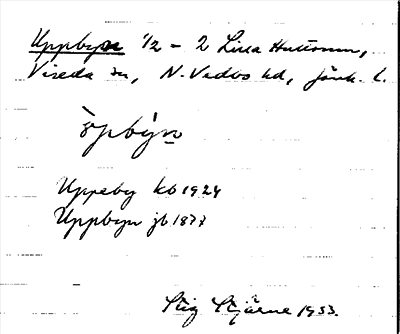 Uppbyn 1/2 - 2 Lilla Huttorm,
Vireda sn, N. Vedbo hd, Jönk. l.
òpbýn
Uppeby kb 1924
Uppbyn jb 1877
Stig Stjärne 1933.